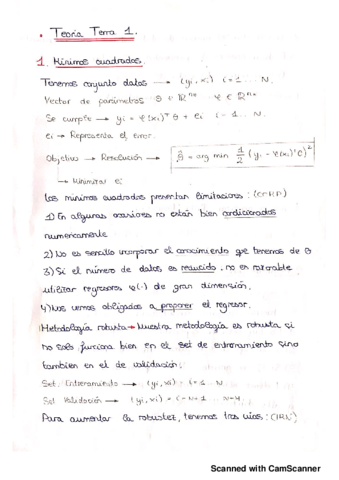 • Teoría Tema 1.
1. Mínimos cuadrados.
Tenemos conjunto datos → (yi, xi) i=1... N.
Vector de parámetros θ ∈ ℝ^nθ φ ∈ ℝ^nθ
Se cumple → yi = φ(xi)ᵀ θ + ei i=1... N.
ei → Representa el error.
Objetivo → Resolución → θ̂ = arg min 1/2 (yi - φ(xi)ᵀθ)²
↳ Minimizar ei
Los mínimos cuadrados presentan limitaciones:
1) En algunas ocasiones no están bien condicionados
numéricamente
2) No es sencillo incorporar el conocimiento que tenemos de θ
3) Si el número de datos es reducido, no es razonable
utilizar regresores φ(·) de gran dimensión.
4) Nos vemos obligados a proponer el regresor.
Metodología robusta → Nuestra metodología es robusta si
no solo funciona bien en el set de entrenamiento sino
tambien en el de validación:
Set Entrenamiento → (yi, xi) = i=1... N
Set Validación → (yi, xi) =
Para aumentar la robustez, tenemos tres vías:
Scanned with CamScanner